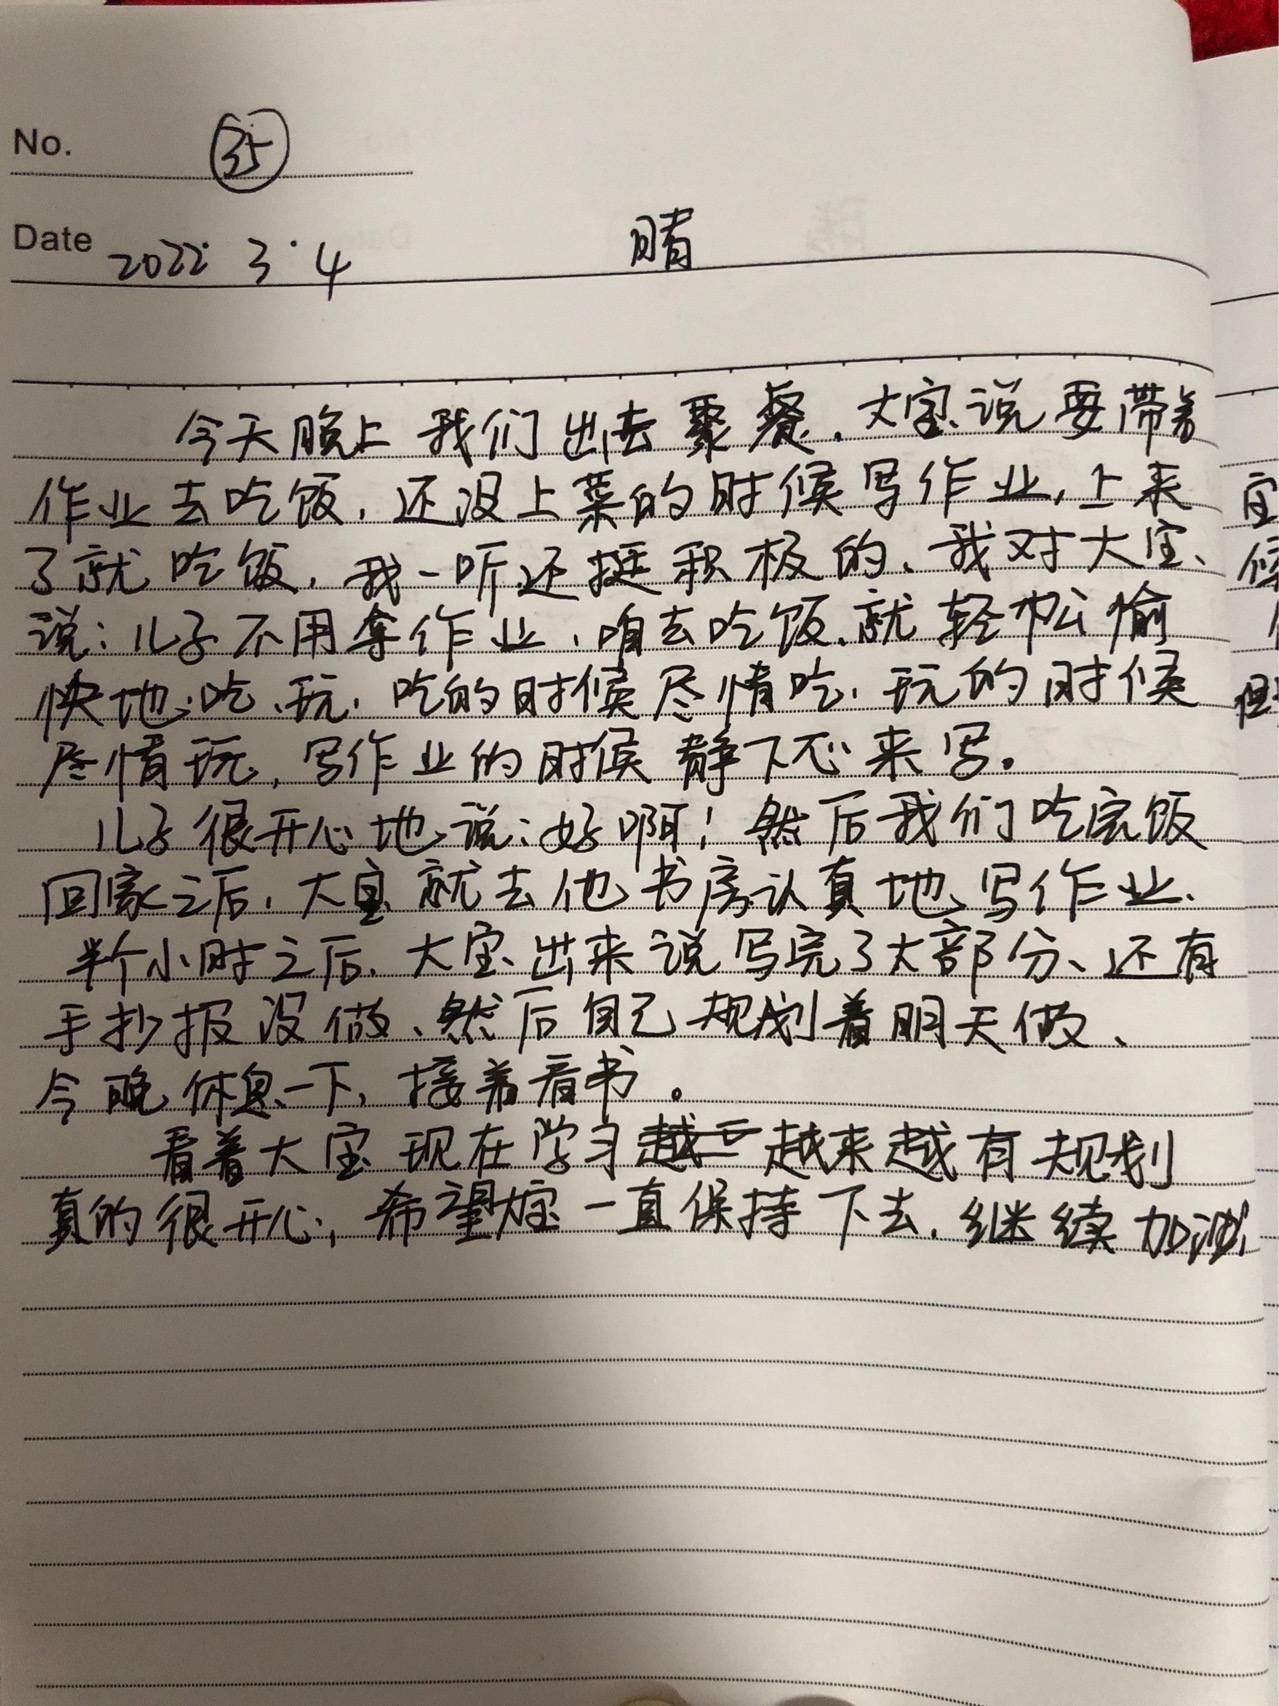 No. ㉟
Date 2022.3.4 晴
今天晚上我们出去聚餐,大宝说要带着
作业去吃饭,还没上菜的时候写作业,上来
了就吃饭,我一听还挺积极的、我对大宝
说:儿子不用拿作业,咱去吃饭就轻松愉
快地吃、玩,吃的时候尽情吃,玩的时候
尽情玩,写作业的时候静下心来写。
儿子很开心地说:好啊!然后我们吃完饭
回家之后,大宝就去他书房认真地写作业、
半个小时之后,大宝出来说写完了大部分、还有
手抄报没做、然后自己规划着明天做、
今晚休息一下,接着看书。
看着大宝现在学习越来越有规划
真的很开心,希望大宝一直保持下去,继续加油